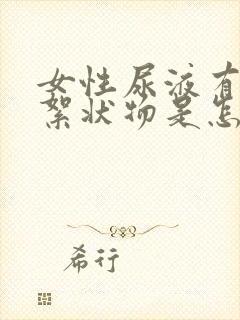 女性尿液有
絮状物是怎
希行